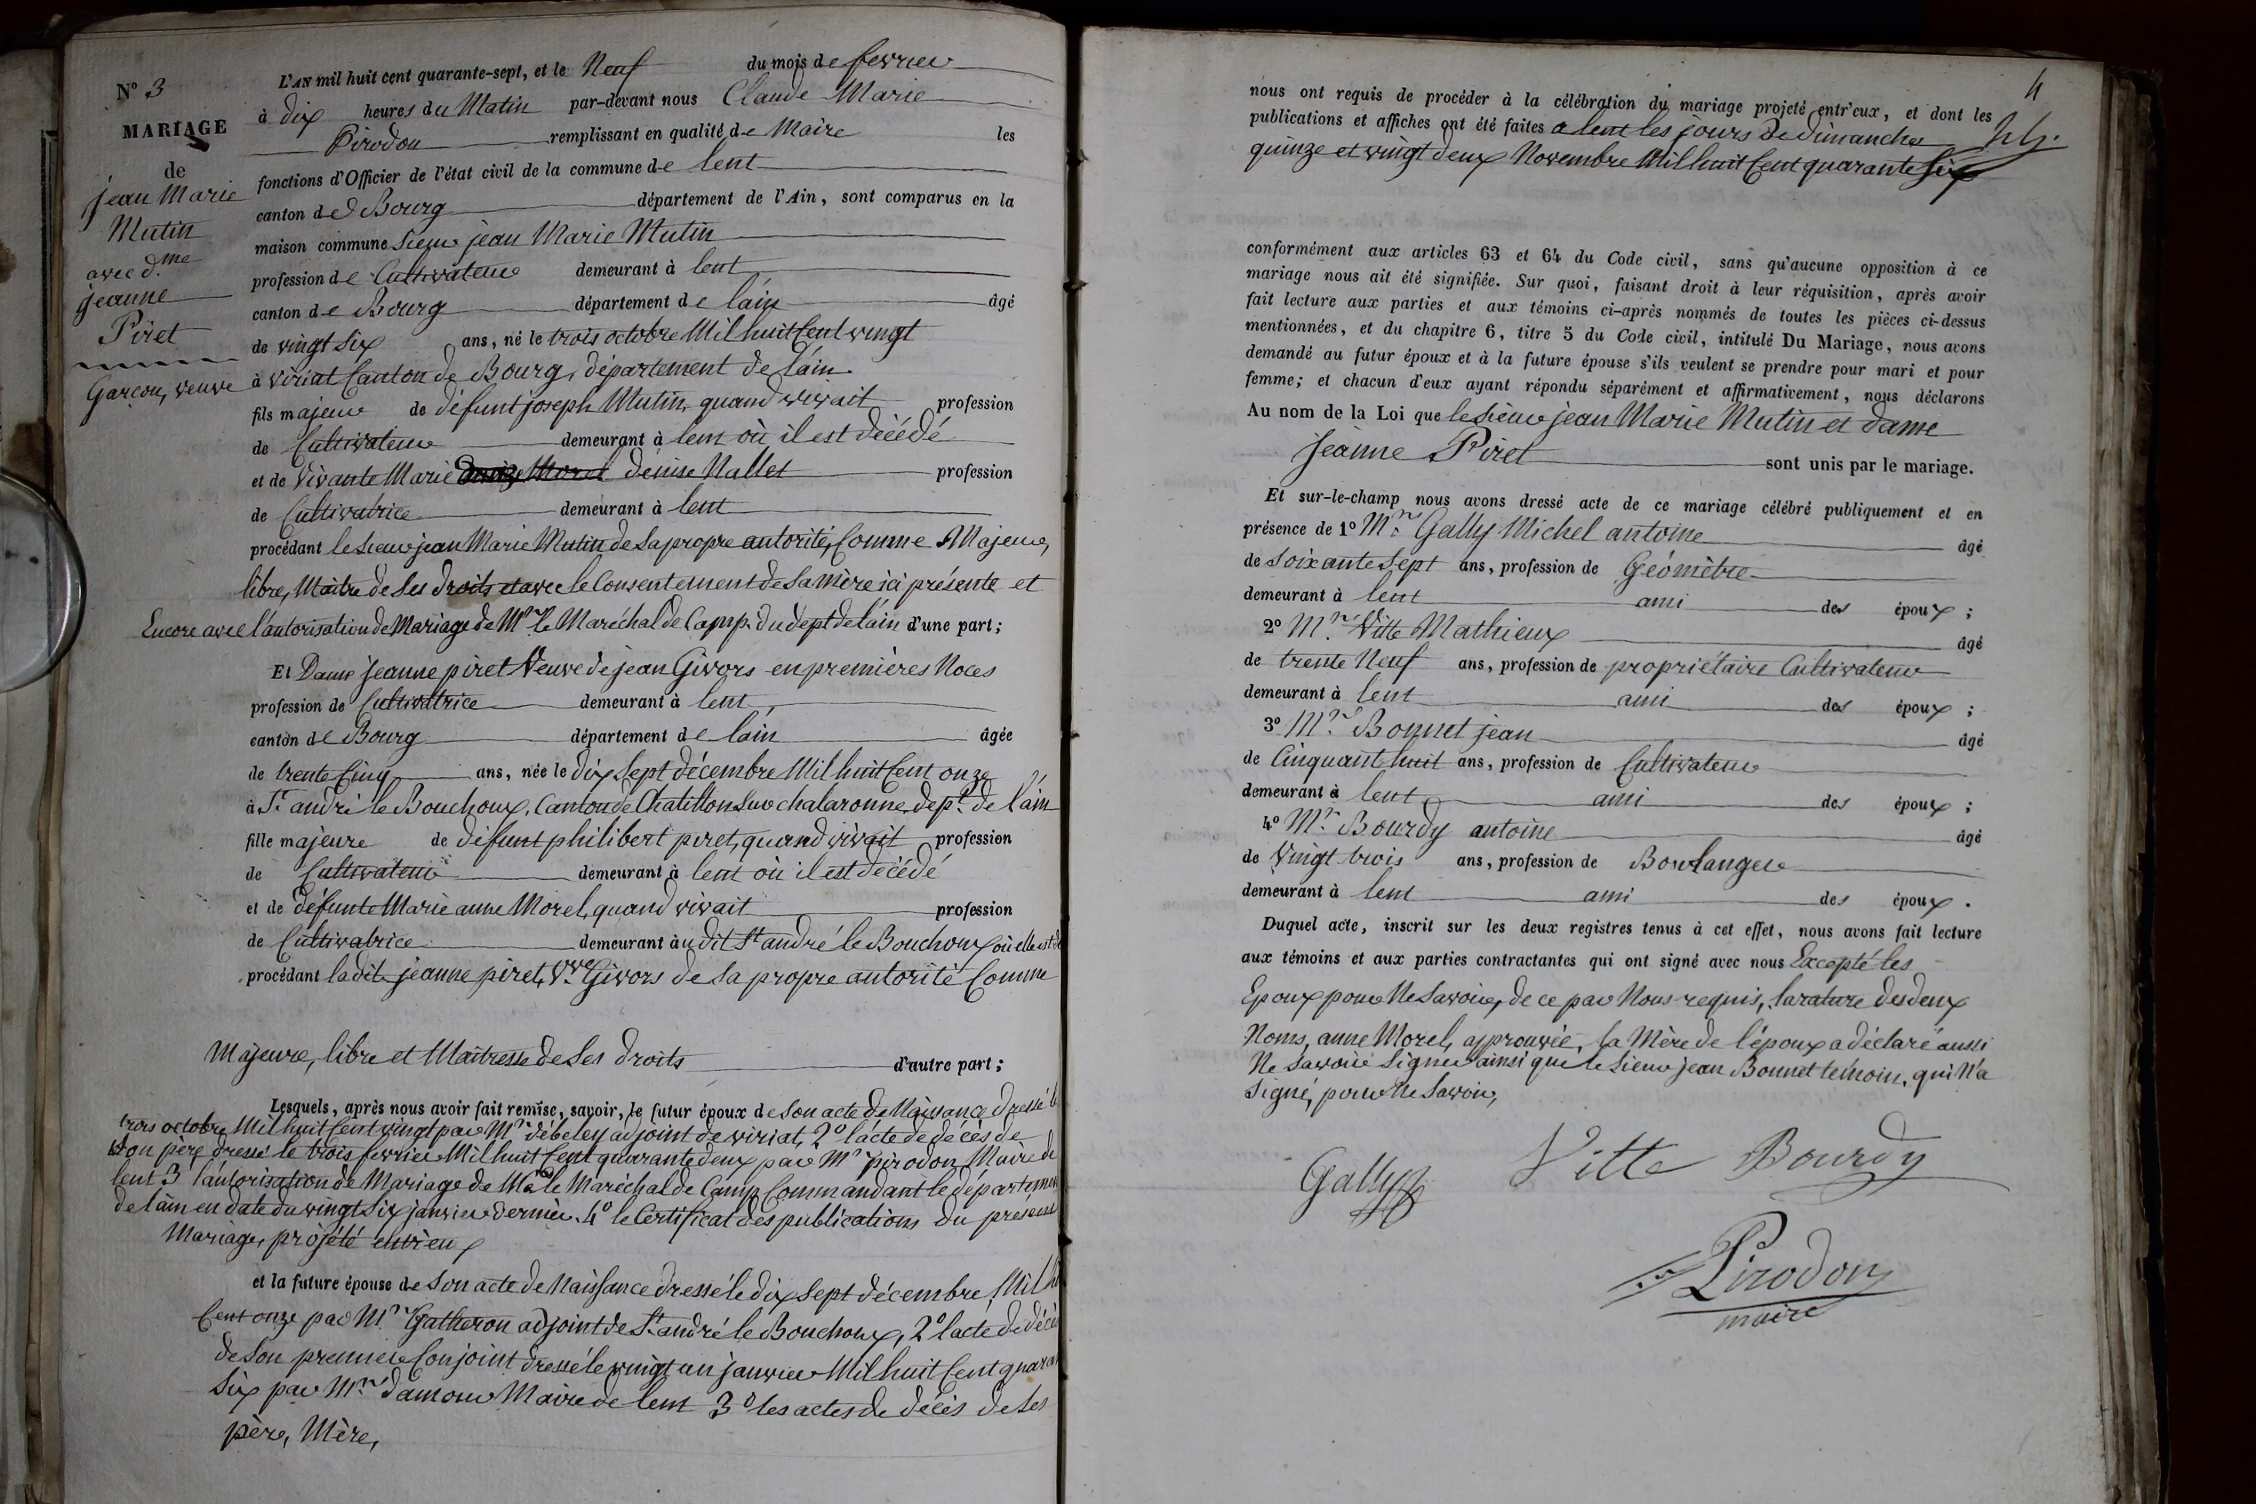 N° 3
MARIAGE
de
jean Marie
Mutin
avec d.me
jeanne
Piret
Garçon, veuve
L'AN mil huit cent quarante-sept, et le Neuf du mois de fevrier
à dix heures du Matin par-devant nous Claude Marie
Pirodon remplissant en qualité de Maire les
fonctions d'Officier de l'état civil de la commune de lent
canton de Bourg département de l'Ain, sont comparus en la
maison commune Sieur jean Marie Mutin
profession de Cultivateur demeurant à lent
canton de Bourg département de l'áin âgé
de vingt Six ans, né le trois octobre Mil huit Cent vingt
à viriat Canton de Bourg, département de l'áin.
fils majeur de défunt joseph Mutin, quand vivait profession
de Cultivateur demeurant à lent où il est décédé
et de Vivante Marie denise Nallet profession
de Cultivatrice demeurant à lent
procédant le Sieur jean Marie Mutin de Sa propre autorité, Comme Majeur,
libre, Maitre de Ses droits et avec le Consentement de Sa Mère ici présente et
Encore avec l'autorisation de Mariage de Mr le Maréchal de Camp. du dépt de l'áin d'une part;
Et Dame jeanne piret Veuve de jean Givors en premières Noces
profession de Cultivatrice demeurant à lent,
canton de Bourg département de l'áin âgée
de trente Cinq ans, née le dix Sept décembre Mil huit Cent onze
à St. andré le Bouchoux, Canton de Chatillon Sur chalaronne, dépt. de l'áin
fille majeure de défunt philibert piret, quand vivait profession
de Cultivateur demeurant à lent où il est décédé
et de défunte Marie anne Morel, quand vivait profession
de Cultivatrice demeurant àu dit St andré le Bouchoux où elle est dé
procédant ladite jeanne piret, Vve Givors de Sa propre autorité Comme
Majeure, libre et Maitresse de Ses droits d'autre part;
Lesquels, après nous avoir fait remise, savoir, le futur époux de Son acte de Naissance dressé le
trois octobre Mil huit Cent vingt par Mr. débeley adjoint de viriat, 2° l'acte de décès de
Son père dressé le trois fevrier Mil huit Cent quarante deux par Mr pirodon Maire de
lent 3° l'autorisation de Mariage de Mr le Maréchal de Camp Commandant le départemen
de l'áin en date du vingt Six janvier dernier. 4° le Certificat des publications du présent
Mariage, projété entr'eux
et la future épouse de Son acte de Naissance dressé le dix Sept décembre Mil hu
Cent onze par Mr. Gatheron adjoint de St andré le Bouchoux, 2° l'acte de décè
de Son premier Conjoint dressé le vingt un janvier Mil huit Cent quaran
Six par Mr. damour Maire de lent 3° les actes de décès de Ses
père, Mère,
4
nous ont requis de procéder à la célébration du mariage projeté entr'eux, et dont les
publications et affiches ont été faites a lent les jours de dimanche
quinze et vingt deux Novembre Mil huit Cent quarante Six
conformément aux articles 63 et 64 du Code civil, sans qu'aucune opposition à ce
mariage nous ait été signifiée. Sur quoi, faisant droit à leur réquisition, après avoir
fait lecture aux parties et aux témoins ci-après nommés de toutes les pièces ci-dessus
mentionnées, et du chapitre 6, titre 5 du Code civil, intitulé Du Mariage, nous avons
demandé au futur époux et à la future épouse s'ils veulent se prendre pour mari et pour
femme; et chacun d'eux ayant répondu séparément et affirmativement, nous déclarons
Au nom de la Loi que le Sieur jean Marie Mutin et dame
Jeanne Piret sont unis par le mariage.
Et sur-le-champ nous avons dressé acte de ce mariage célébré publiquement et en
présence de 1° Mr. Gally Michel antoine âgé
de Soixante Sept ans, profession de Géomètre
demeurant à lent ami des époux;
2° Mr. Vitte Mathieux âgé
de trente Neuf ans, profession de propriétaire Cultivateur
demeurant à lent ami des époux;
3° Mr. Bonnet jean âgé
de Cinquant huit ans, profession de Cultivateur
demeurant à lent ami des époux;
4° Mr. Bourdy antoine âgé
de Vingt trois ans, profession de Boulanger
demeurant à lent ami des époux.
Duquel acte, inscrit sur les deux registres tenus à cet effet, nous avons fait lecture
aux témoins et aux parties contractantes qui ont signé avec nous Excepté les
Epoux pour Ne Savoir, de ce par Nous requis, la rature des deux
Noms, anne Morel, approuvée, la Mère de l'époux a déclaré aussi
Ne Savoir Signer ainsi que le Sieur jean Bonnet témoin, qui N'a
Signé, pour Ne Savoir,
Gally Vitte Bourdy
Pirodon
maire